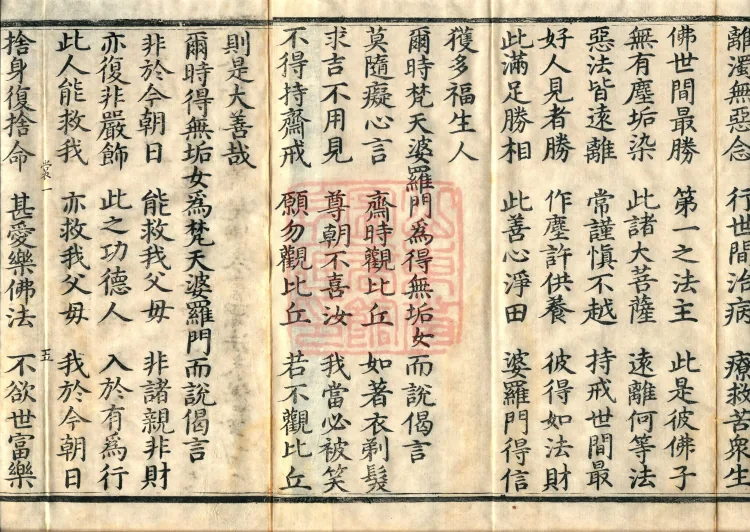 離濁無惡念 行世間治病 療救苦眾生
佛世間最勝 第一之法主 此是彼佛子
無有塵垢染 此諸大菩薩 遠離何等法
惡法皆遠離 常謹慎不越 持戒世間最
好人見者勝 作塵許供養 彼得如法財
此滿足勝相 此善心淨田 婆羅門得信
獲多福生人
爾時梵天婆羅門為得無垢女而說偈言
莫隨癡心言 齋時觀比丘 如著衣剃髮
求吉不用見 尊朝不喜汝 我當必被笑
不得持齋戒 願勿觀比丘 若不觀比丘
則是大善哉
爾時得無垢女為梵天婆羅門而說偈言
非於今朝日 能救我父母 非諸親非財
亦復非嚴飾 此之功德人 入於有為行
此人能救我 亦救我父母 我於今朝日
五
捨身復捨命 甚愛樂佛法 不欲世富樂